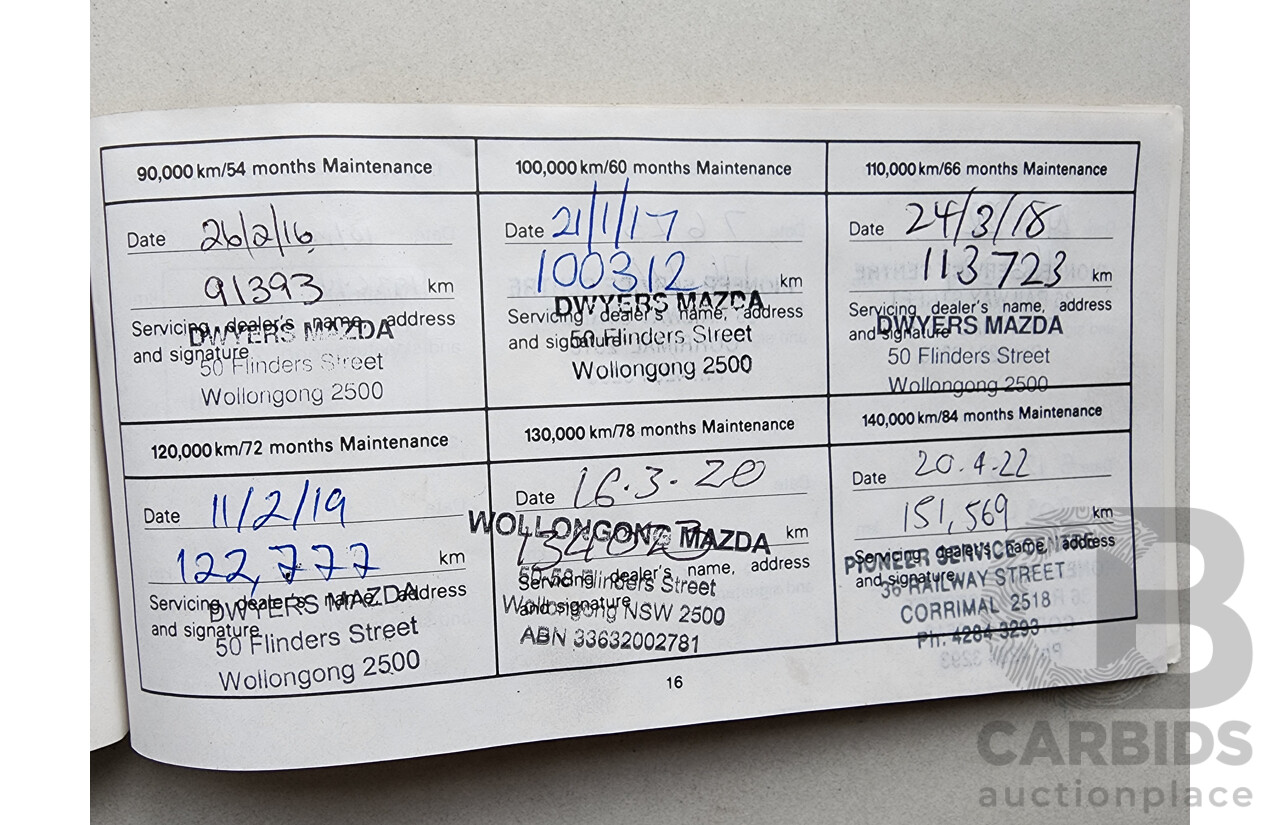 90,000 km/54 months Maintenance
Date 26/2/16
91393 km
Servicing dealer's name, address
and signature
DWYERS MAZDA
50 Flinders Street
Wollongong 2500
100,000 km/60 months Maintenance
Date 21/1/17
100312 km
Servicing dealer's name, address
and signature
DWYERS MAZDA
50 Flinders Street
Wollongong 2500
110,000 km/66 months Maintenance
Date 24/3/18
113723 km
Servicing dealer's name, address
and signature
DWYERS MAZDA
50 Flinders Street
Wollongong 2500
120,000 km/72 months Maintenance
Date 11/2/19
122,777 km
Servicing dealer's name, address
and signature
DWYERS MAZDA
50 Flinders Street
Wollongong 2500
130,000 km/78 months Maintenance
Date 16.3.20
km
Servicing dealer's name, address
and signature
WOLLONGONG MAZDA
Flinders Street
Wollongong NSW 2500
ABN 33632002781
140,000 km/84 months Maintenance
Date 20.4.22
151,569 km
Servicing dealer's name, address
and signature
PIONEER SERVICE CENTRE
36 RAILWAY STREET
CORRIMAL 2518
Ph: 4284 3293
16
B
CARBIDS
auctionplace